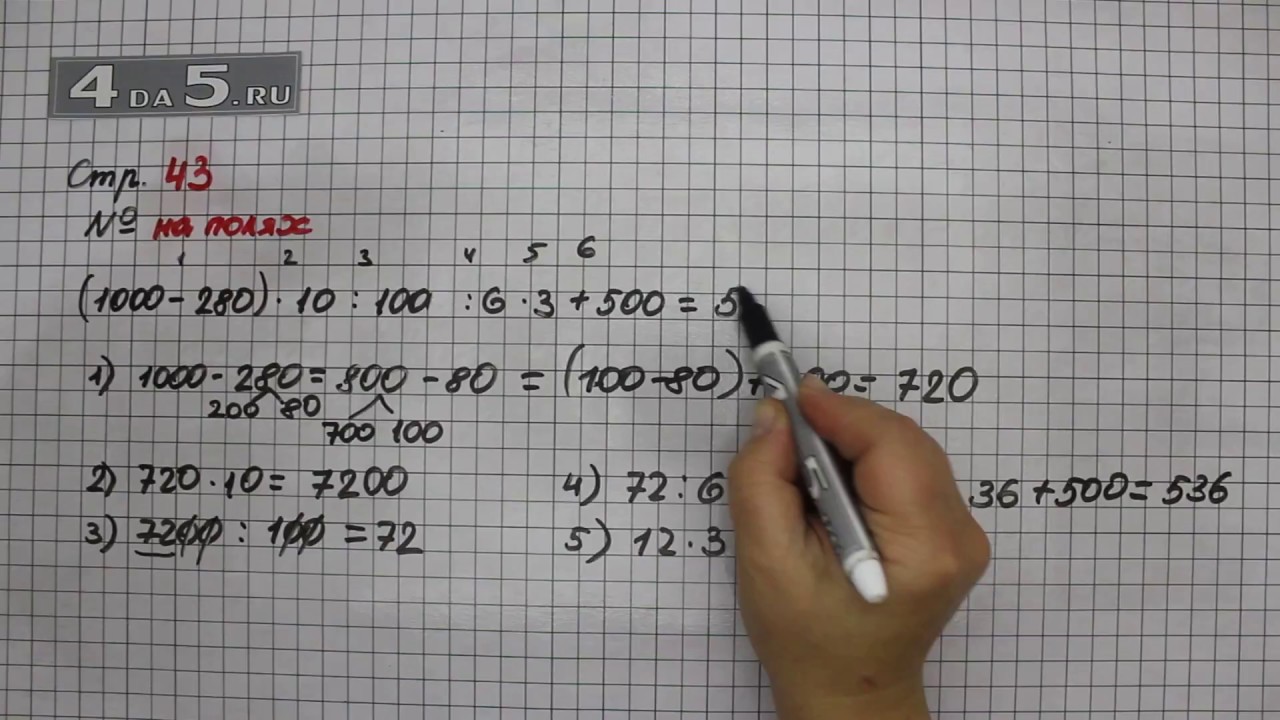 4DA5.RU
Стр. 43
№ на полях
1 2 3 4 5 6
(1000-280)·10:100 :6·3+500=5
1) 1000-280=800-80=(100-80)+00=720
200 80
700 100
2) 720·10=7200
4) 72:6
36+500=536
3) 7200:100=72
5) 12·3